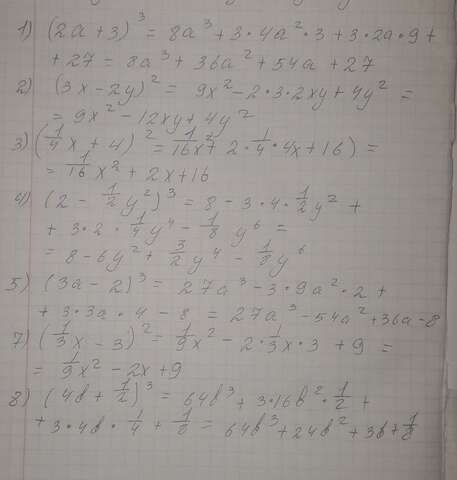 1) (2a + 3)³ = 8a³ + 3·4a²·3 + 3·2a·9 +
+ 27 = 8a³ + 36a² + 54a + 27
2) (3x - 2y)² = 9x² - 2·3·2xy + 4y² =
= 9x² - 12xy + 4y²
3) (1/4x + 4)² = 1/16x² + 2·1/4·4x + 16) =
= 1/16x² + 2x + 16
4) (2 - 1/2y²)³ = 8 - 3·4·1/2y² +
+ 3·2·1/4y⁴ - 1/8y⁶ =
= 8 - 6y² + 3/2y⁴ - 1/8y⁶
5) (3a - 2)³ = 27a³ - 3·9a²·2 +
+ 3·3a·4 - 8 = 27a³ - 54a² + 36a - 8
7) (1/3x - 3)² = 1/9x² - 2·1/3x·3 + 9 =
= 1/9x² - 2x + 9
8) (4b + 1/2)³ = 64b³ + 3·16b²·1/2 +
+ 3·4b·1/4 + 1/8 = 64b³ + 24b² + 3b + 1/8